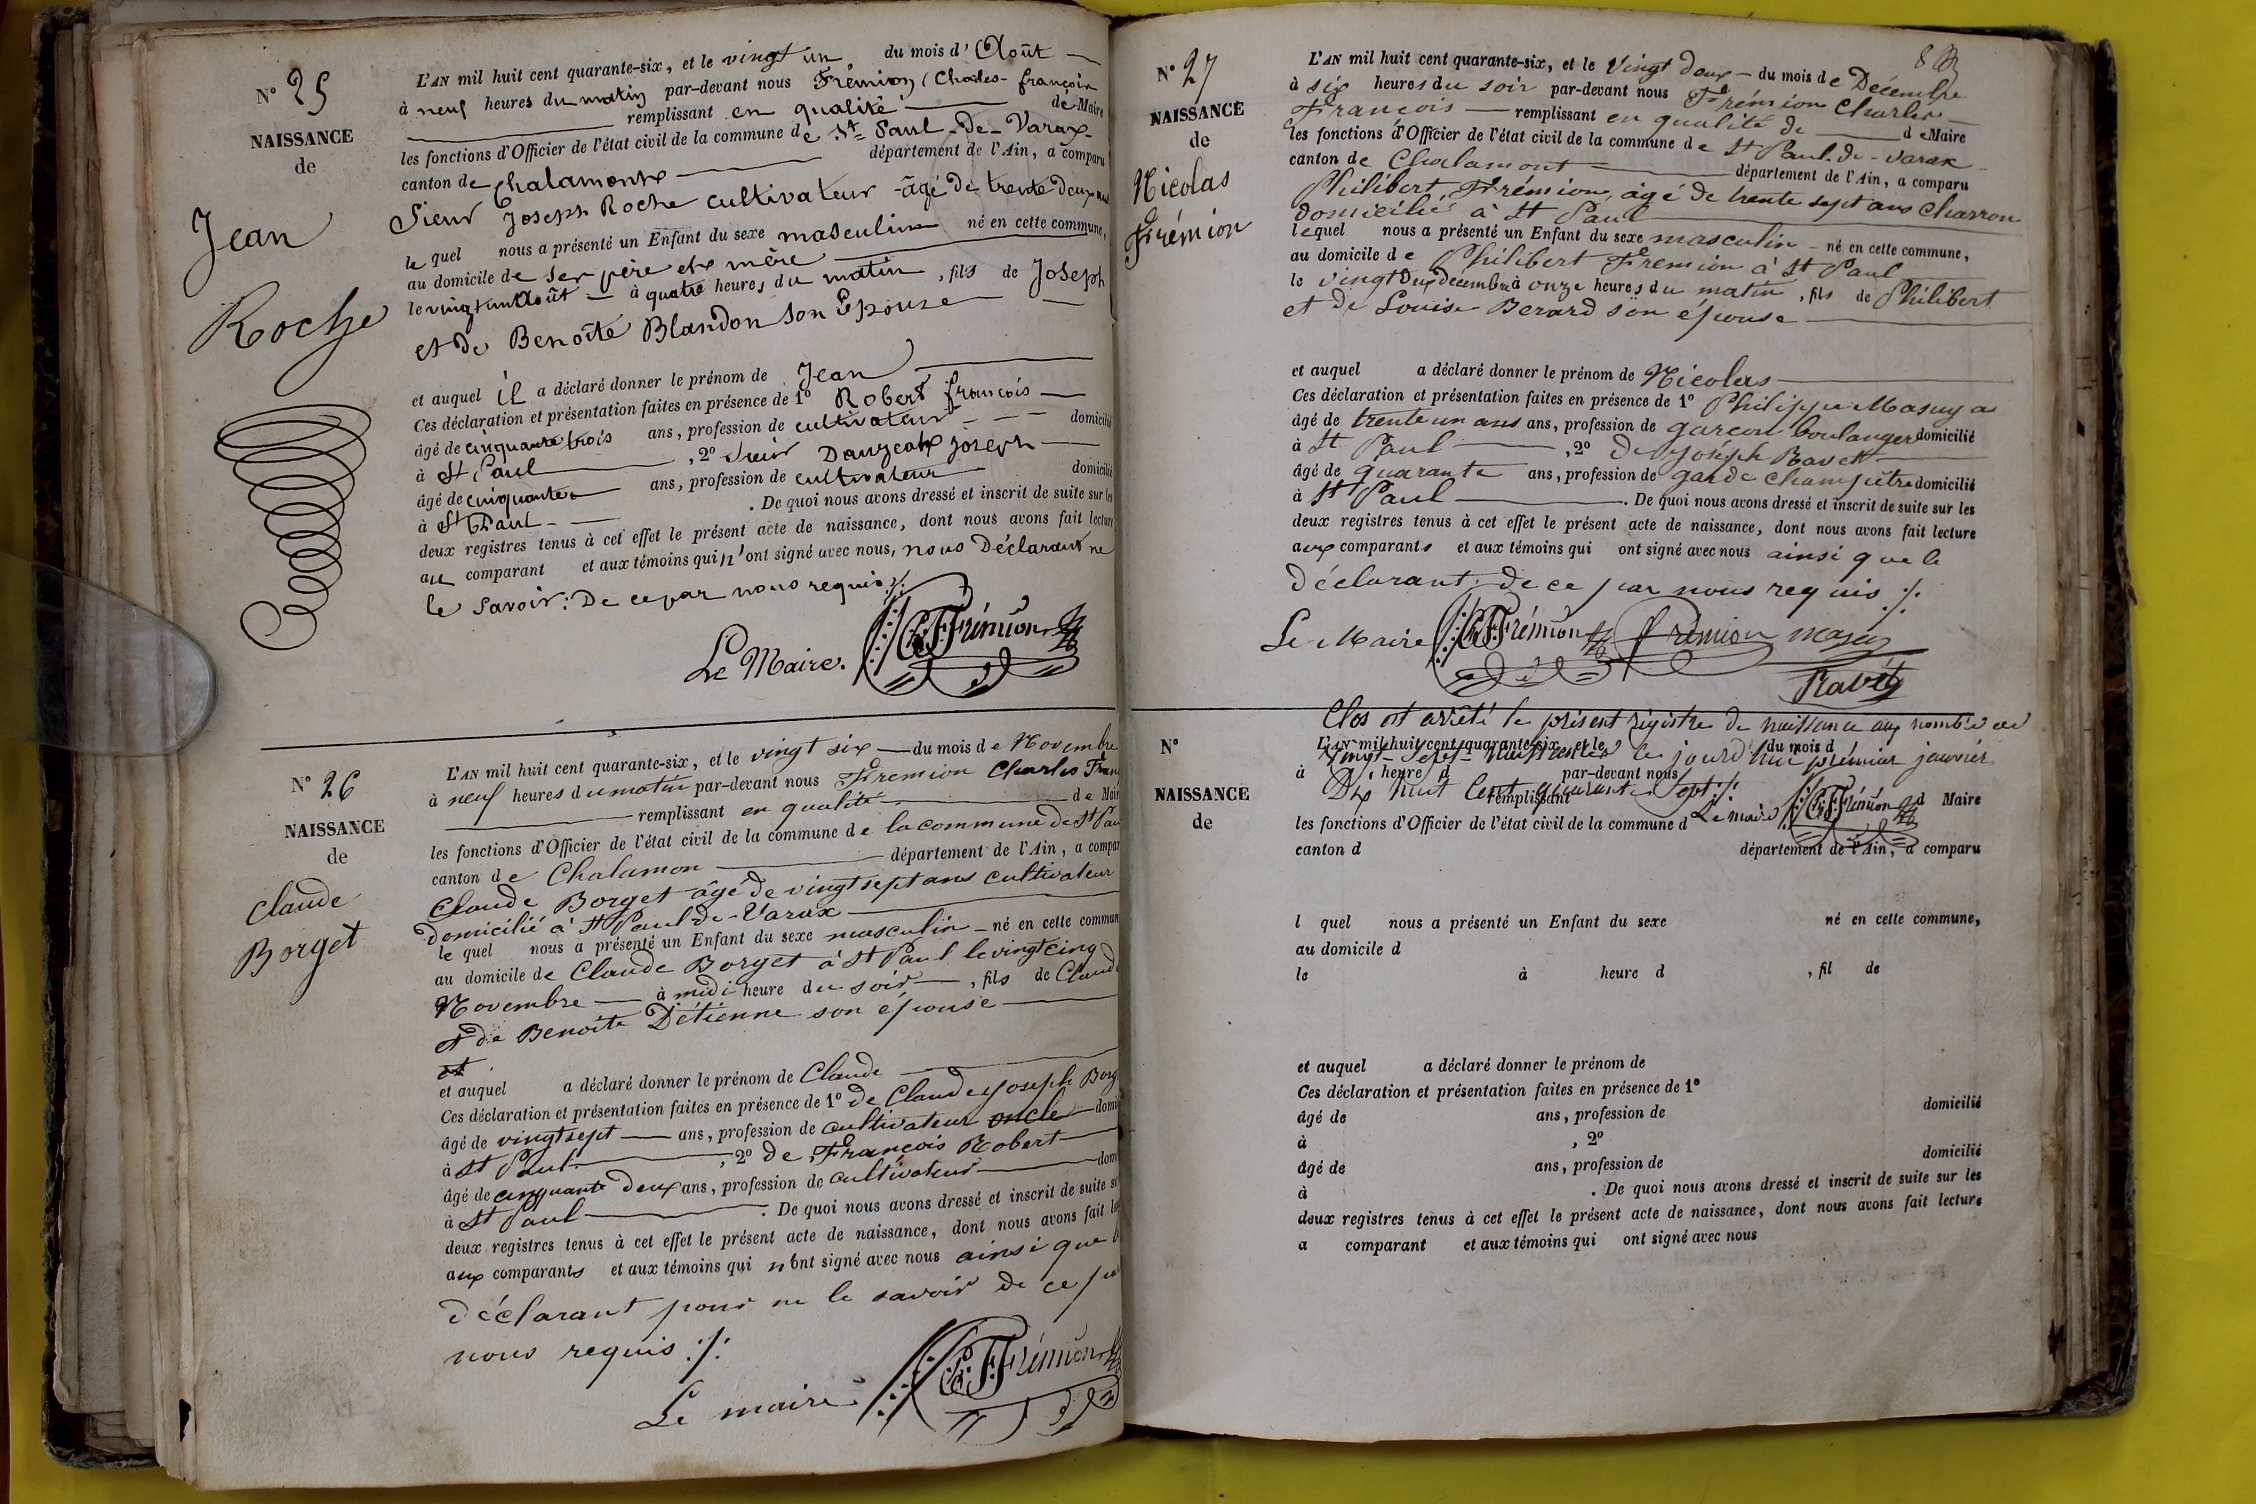 N° 25
NAISSANCE
de
Jean
Roche
L'AN mil huit cent quarante-six, et le vingt un du mois d' Août
à neuf heures du matin par-devant nous Frémion Charles-françois
remplissant en qualité de Maire
les fonctions d'Officier de l'état civil de la commune de St Paul-De-Varax
canton de Chalamont département de l'Ain, a comparu
Sieur Joseph Roche cultivateur âgé De trente Deux ans
le quel nous a présenté un Enfant du sexe masculin né en cette commune,
au domicile de ses père et mère
le vingt un Août à quatre heures du matin, fils de Joseph
et De Benoîte Blandon Son Epouse
et auquel il a déclaré donner le prénom de Jean
Ces déclaration et présentation faites en présence de 1° Robert françois
âgé de cinquante trois ans, profession de cultivateur domicilié
à St Paul , 2° Sieur Danjean joseph
âgé de cinquante ans, profession de cultivateur domicilié
à St Paul . De quoi nous avons dressé et inscrit de suite sur les
deux registres tenus à cet effet le présent acte de naissance, dont nous avons fait lecture
au comparant et aux témoins qui n'ont signé avec nous, nous Déclarant ne
le Savoir: De ce par nous requis ./.
Le Maire. C.F. Frémion
N° 26
NAISSANCE
de
Claude
Borget
L'AN mil huit cent quarante-six, et le vingt six du mois de Novembre
à neuf heures du matin par-devant nous Fremion Charles Fran
remplissant en qualité de Mair
les fonctions d'Officier de l'état civil de la commune de la commune de St Pau
canton de Chalamon département de l'Ain, a compar
Claude Borget âgé De vingt sept ans cultivateur
Domicilié à St Paul-de-Varax
le quel nous a présenté un Enfant du sexe masculin né en cette commun
au domicile de Claude Borget à St Paul le vingt cinq
Novembre à midi heure du soir, fils de Claude
et de Benoite Détienne son épouse
et
et auquel a déclaré donner le prénom de Claude
Ces déclaration et présentation faites en présence de 1° de Claude Joseph Borg
âgé de vingt sept ans, profession de cultivateur oncle domi
à St Paul , 2° de François Robert
âgé de cinquante deux ans, profession de cultivateur dom
à St Paul . De quoi nous avons dressé et inscrit de suite s
deux registres tenus à cet effet le présent acte de naissance, dont nous avons fait le
aux comparants et aux témoins qui n'ont signé avec nous ainsi que
déclarant pour ne le savoir de ce
nous requis ./.
Le maire. C.F. Frémion
N° 27
NAISSANCE
de
Nicolas
Frémion
L'AN mil huit cent quarante-six, et le Vingt deux du mois de Décembre
à six heures du soir par-devant nous Frémion Charles
Francois remplissant en qualité de de Maire
les fonctions d'Officier de l'état civil de la commune de St Paul-de-varax
canton de Chalamont département de l'Ain, a comparu
Philibert Frémion, âgé de trente sept ans charron
domicilié à St Paul
lequel nous a présenté un Enfant du sexe masculin né en cette commune,
au domicile de Philibert Fremion à St Paul
le vingt Deux décembre à onze heures du matin, fils de Philibert
et de Louise Berard son épouse
et auquel a déclaré donner le prénom de Nicolas
Ces déclaration et présentation faites en présence de 1° Philippe Masuy
âgé de trente un ans ans, profession de garçon boulanger domicilié
à St Paul , 2° De joséph Ravet
âgé de quarante ans, profession de garde champêtre domicilié
à St Paul . De quoi nous avons dressé et inscrit de suite sur les
deux registres tenus à cet effet le présent acte de naissance, dont nous avons fait lecture
aux comparants et aux témoins qui ont signé avec nous ainsi que le
déclarant; de ce par nous requis ./.
Le Maire C.F. Frémion fremion masuy
Ravet
N°
NAISSANCE
de
Clos et arrêté le présent registre de naissance au nombre de
L'AN mil huit cent quarante-six, et le du mois d
Vingt-Sept naissances le jourd'hui premier janvier
à heure d par-devant nous
Dix huit Cent quarante Sept ./.
remplissant d Maire
Le maire C.F. Frémion
les fonctions d'Officier de l'état civil de la commune d
canton d département de l'Ain, a comparu
l quel nous a présenté un Enfant du sexe né en cette commune,
au domicile d
le à heure d , fil de
et auquel a déclaré donner le prénom de
Ces déclaration et présentation faites en présence de 1°
âgé de ans, profession de domicilié
à , 2°
âgé de ans, profession de domicilié
à . De quoi nous avons dressé et inscrit de suite sur les
deux registres tenus à cet effet le présent acte de naissance, dont nous avons fait lecture
a comparant et aux témoins qui ont signé avec nous